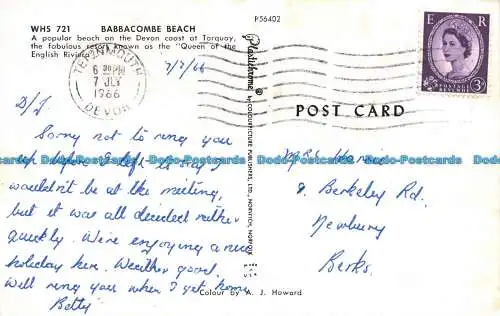 WHS 721 BABBACOMBE BEACH
A popular beach on the Devon coast at Torquay,
the fabulous resort known as the "Queen of the
English Riviera"
P56402
E R
POSTAGE
REVENUE
3D
TEIGNMOUTH
6 30 PM
7 JLY
1966
DEVON
7/7/66
Plastichrome ® by COLOURPICTURE PUBLISHERS LTD., NORWICH, NORFOLK
POST CARD
D/J
Sorry not to ring you
up before I left to say I
wouldn't be at the meeting,
but it was all decided rather
quickly. We're enjoying a nice
holiday here. Weather good.
Will ring you when I get home
Betty
8 Berkeley Rd.
Newbury
Berks.
Colour by A. J. Howard
Dodo-Postcards Dodo-Postcards Dodo-Postcards Dodo-Postcards Dodo-Postcards Dodo-Postcards